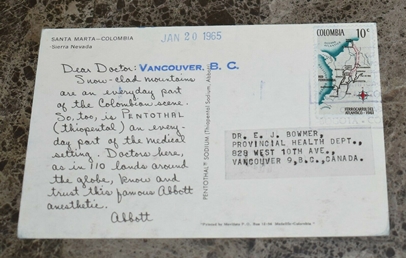 SANTA MARTA-COLOMBIA
Sierra Nevada
JAN 20 1965
Dear Doctor: VANCOUVER, B. C.
Snow-clad mountains
are an everyday part
of the Colombian scene.
So, too, is PENTOTHAL
(thiopental) an every-
day part of the medical
setting. Doctors here,
as in 110 lands around
the globe, know and
trust this famous Abbott
anesthetic.
Abbott
PENTOTHAL® SODIUM (Thiopental Sodium, Abbott)
COLOMBIA 10c
FERROCARRIL DEL
ATLANTICO
DR. E. J. BOWMER,
PROVINCIAL HEALTH DEPT.,
828 WEST 10TH AVE.,
VANCOUVER 9,B.C.,CANADA.